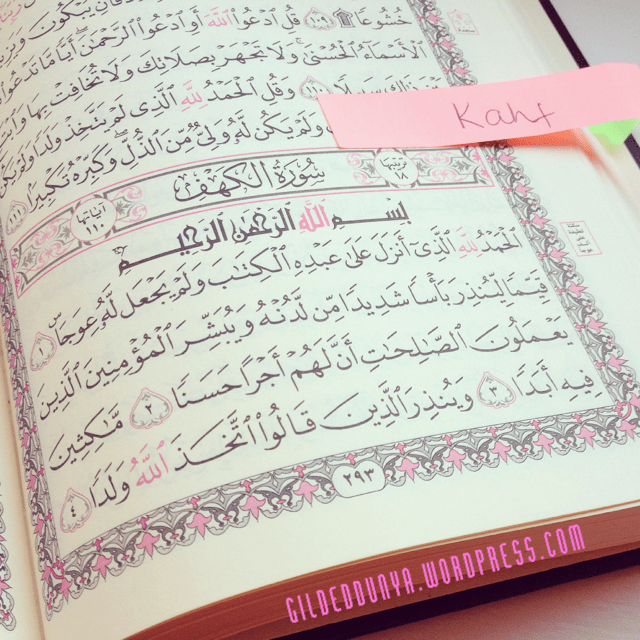 خُشُوعًا ۩ ١٠٩ قُلِ ٱدْعُوا۟ ٱللَّهَ أَوِ ٱدْعُوا۟ ٱلرَّحْمَٰنَ أَيًّا مَّا تَدْعُوا۟
ٱلْأَسْمَآءُ ٱلْحُسْنَىٰ وَلَا تَجْهَرْ بِصَلَاتِكَ وَلَا تُخَافِتْ بِهَا
سَبِيلًا ١١٠ وَقُلِ ٱلْحَمْدُ لِلَّهِ ٱلَّذِى لَمْ يَتَّخِذْ وَلَدًا وَلَمْ يَكُن
وَلَمْ يَكُن لَّهُۥ وَلِىٌّ مِّنَ ٱلذُّلِّ وَكَبِّرْهُ تَكْبِيرًا ١١١
Kahf
سُورَةُ الكَهْفِ
بِسْمِ ٱللَّهِ ٱلرَّحْمَٰنِ ٱلرَّحِيمِ
ٱلْحَمْدُ لِلَّهِ ٱلَّذِىٓ أَنزَلَ عَلَىٰ عَبْدِهِ ٱلْكِتَٰبَ وَلَمْ يَجْعَل لَّهُۥ عِوَجَا ١
قَيِّمًا لِّيُنذِرَ بَأْسًا شَدِيدًا مِّن لَّدُنْهُ وَيُبَشِّرَ ٱلْمُؤْمِنِينَ ٱلَّذِينَ
يَعْمَلُونَ ٱلصَّٰلِحَٰتِ أَنَّ لَهُمْ أَجْرًا حَسَنًا ٢ مَّٰكِثِينَ
فِيهِ أَبَدًا ٣ وَيُنذِرَ ٱلَّذِينَ قَالُوا۟ ٱتَّخَذَ ٱللَّهُ وَلَدًا ٤
٢٩٣
GILDEDDUNYA.WORDPRESS.COM